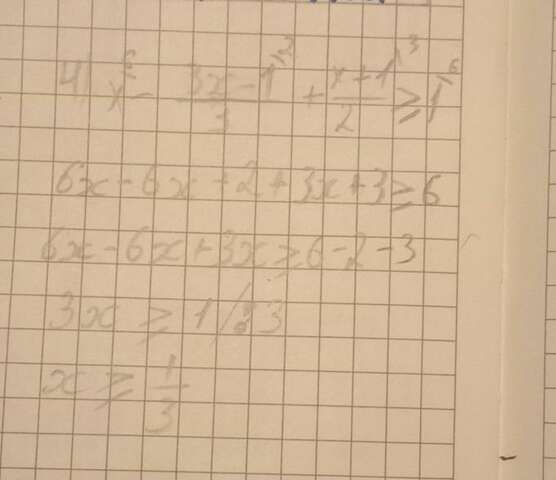 4) x⁶ - (3x-1)/3 ² + (x+1)/2 ³ ≥ 1⁶
6x-6x+2+3x+3≥6
6x-6x+3x≥6-2-3
3x ≥ 1 /:3
x ≥ 1/3